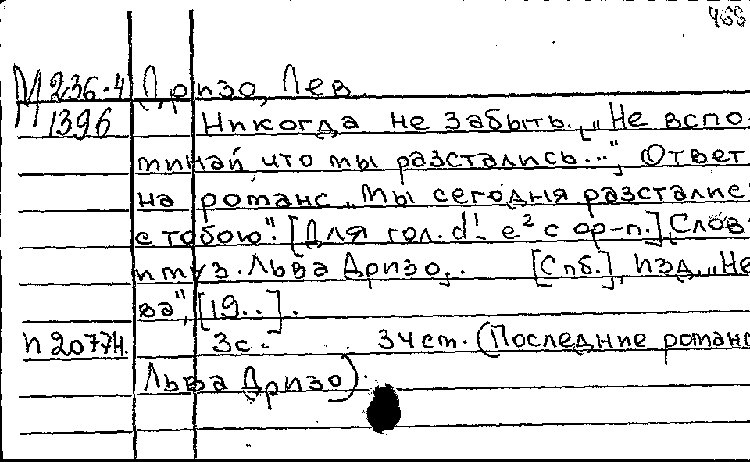 М 236-4 Дризо, Лев
1396 Никогда не забыть. „Не вспо-
минай, что мы разстались...", Ответ
на романс „Мы сегодня разстались
с тобою". [Для гол. d¹- e² с ф-п.] Слов
и муз. Льва Дризо. [Спб.], изд. „Не
ва", [19..].
n 2077н. 3с. 34 cm. (Последние романс
Льва Дризо).